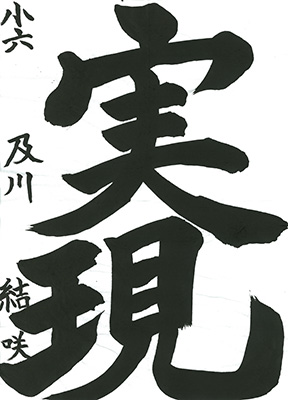 実現
小六 及川 結咲